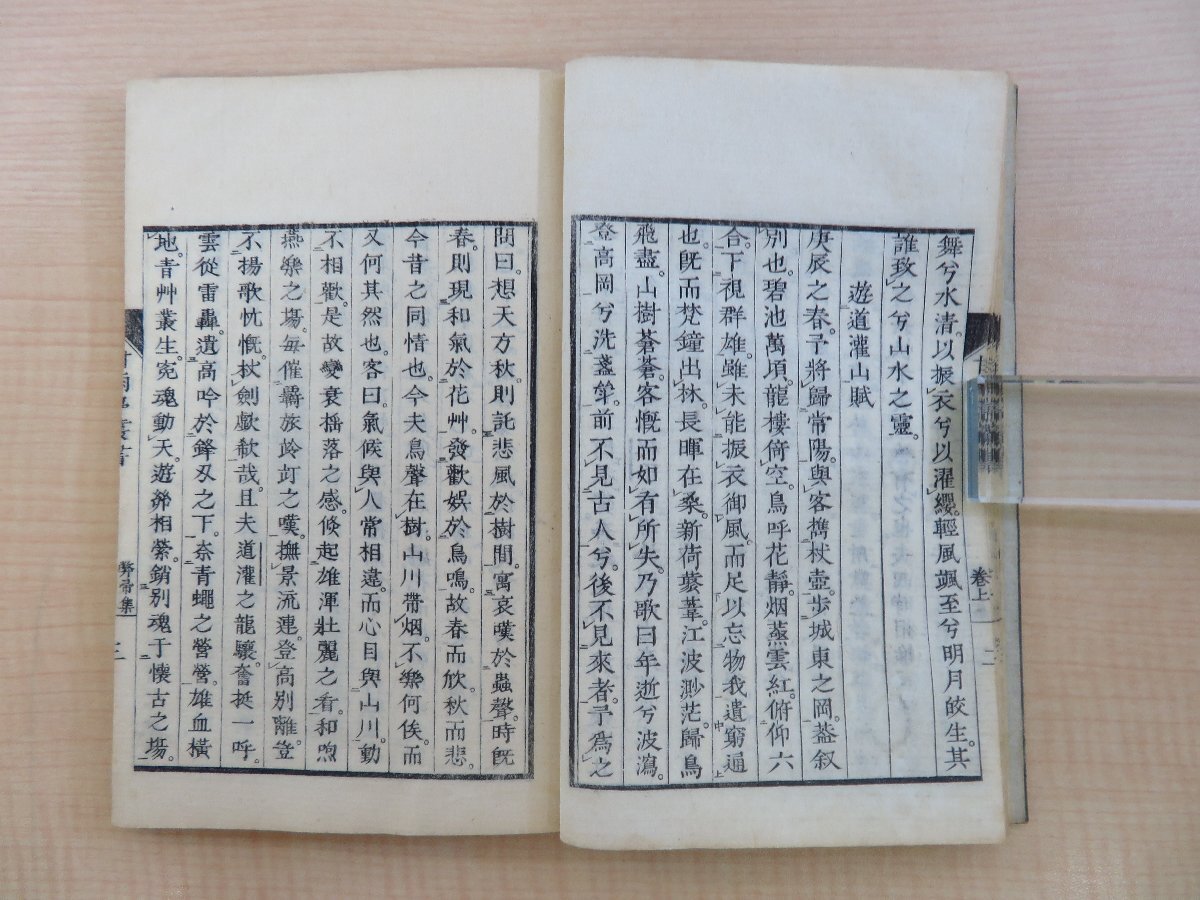 舞兮水清。以振衣兮以濯纓。輕風颯至兮明月皎生。其
誰致之兮山水之靈。
遊道灌山賦
庚辰之春。予將歸常陽。與客攜杖壺。步城東之岡。蓋叙
別也。碧池萬頃。龍樓倚空。鳥呼花靜。烟蒸雲紅。俯仰六
合。下視群雄。雖未能振衣御風。而足以忘物我遺窮通
也。既而梵鐘出林。長暉在桑。新荷蘩葦。江波渺茫。歸鳥
飛盡。山樹蒼蒼。客慨而如有所失。乃歌曰年逝兮波瀉。
登高岡兮洗盞斝。前不見古人兮。後不見來者。予爲之
問曰。想天方秋。則託悲風於樹間。寓哀嘆於蟲聲。時既
春。則現和氣於花艸。發歡娯於鳥鳴。故春而欣。秋而悲。
今昔之同情也。今夫鳥聲在樹。山川帶烟。不樂何俟。而
又何其然也。客曰。氣候與人常相違。而心目與山川。動
不相歡。是故變衰搖落之感。倏起雄渾壯麗之看。和煦
燕樂之塲。每催羇旅竛竮之嘆。撫景流連。登高別離。豈
不揚歌忼慨。杖劍歔欷哉。且夫道灌之龍驤。奮挺一呼。
雲從雷轟。遺高吟於鋒刄之下。奈青蠅之營營。雄血橫
地。青艸叢生。寃魂動天。遊 相縈。銷別魂于懷古之塲。
卷上
二
三